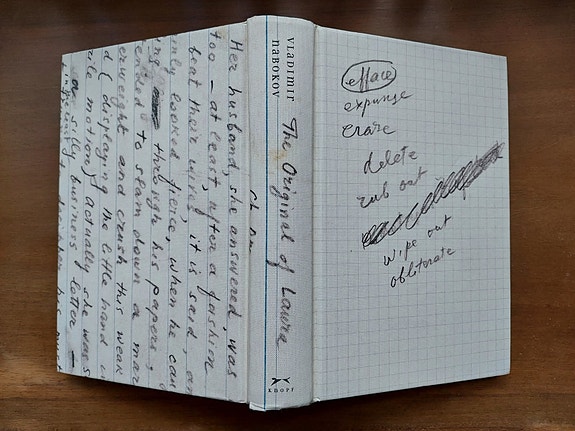 Her husband, she answered, was
too – at least after a fashion
beat their wives, it is said, an
nly looked fierce, when he
ing through his papers,
ended to slam down a mar
erweight and crush this weak
d (displaying the little hand i
ile motion) actually she was
a silly business letter
VLADIMIR
NABOKOV
The Original of Laura
KNOPF
efface
expunge
erase
delete
rub out
wipe out
obliterate